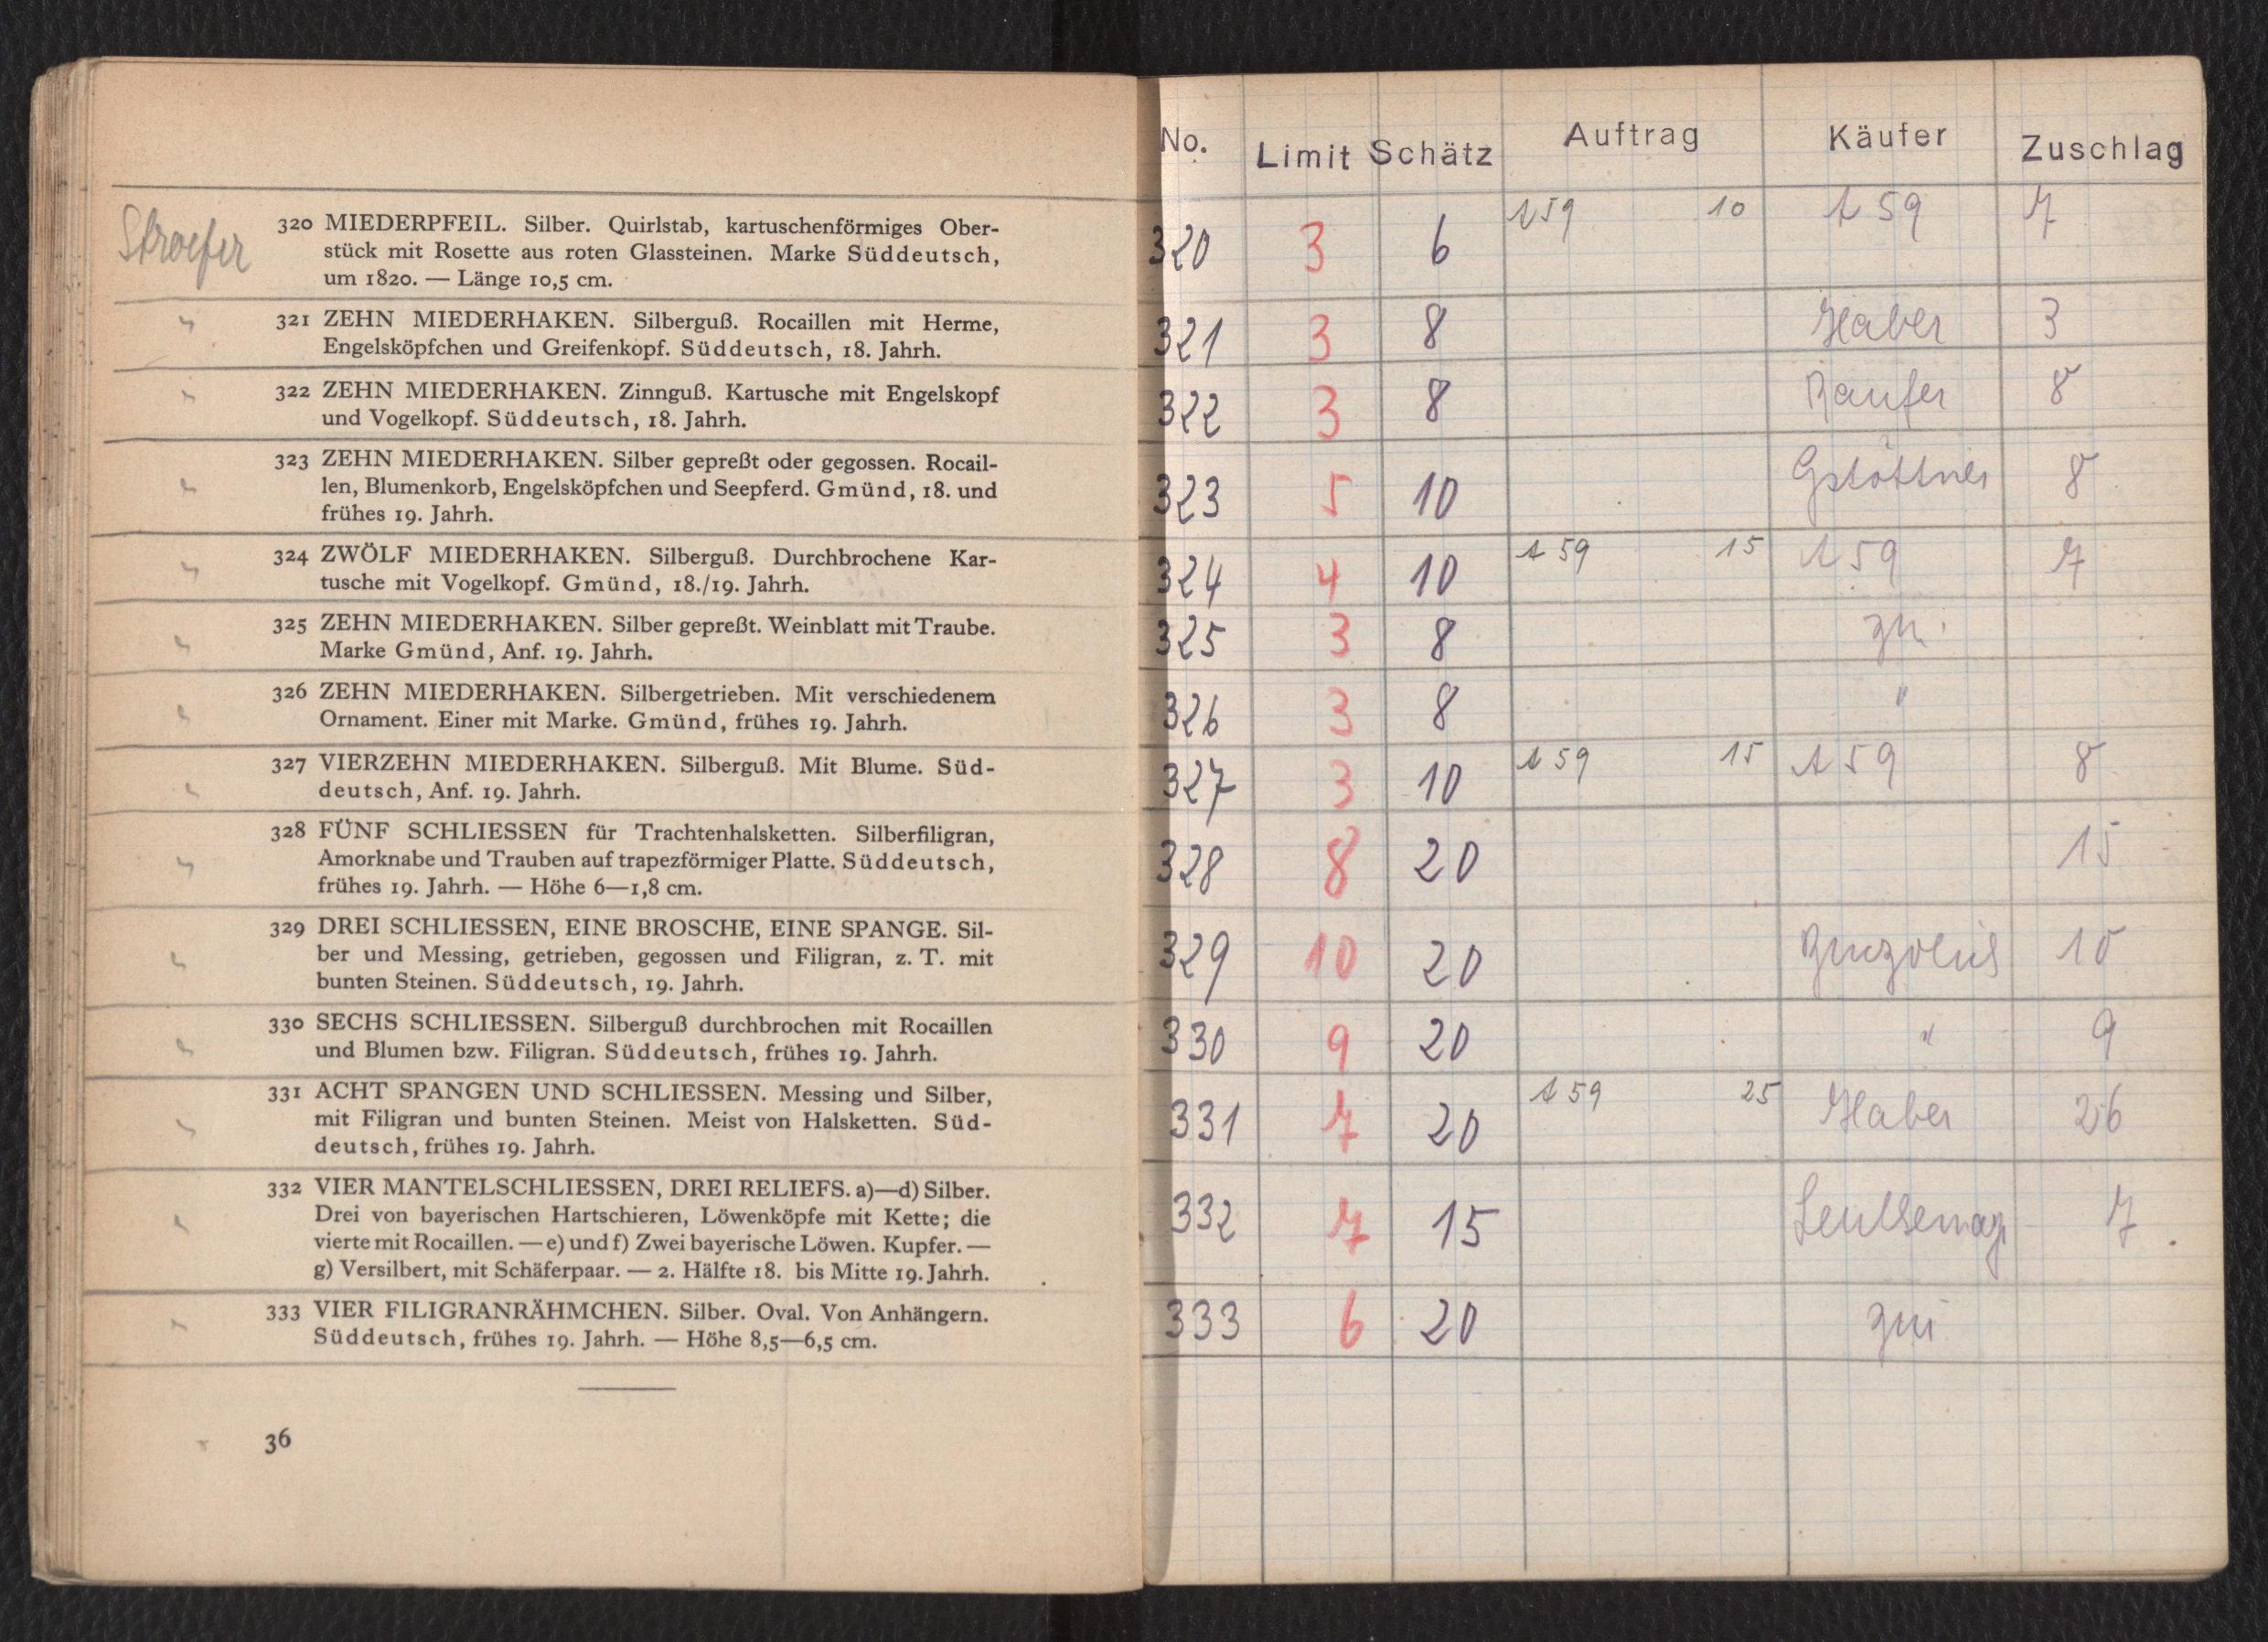 Stroefer
320 MIEDERPFEIL. Silber. Quirlstab, kartuschenförmiges Ober-
stück mit Rosette aus roten Glassteinen. Marke Süddeutsch,
um 1820. — Länge 10,5 cm.
" 321 ZEHN MIEDERHAKEN. Silberguß. Rocaillen mit Herme,
Engelsköpfchen und Greifenkopf. Süddeutsch, 18. Jahrh.
" 322 ZEHN MIEDERHAKEN. Zinnguß. Kartusche mit Engelskopf
und Vogelkopf. Süddeutsch, 18. Jahrh.
" 323 ZEHN MIEDERHAKEN. Silber gepreßt oder gegossen. Rocail-
len, Blumenkorb, Engelsköpfchen und Seepferd. Gmünd, 18. und
frühes 19. Jahrh.
" 324 ZWÖLF MIEDERHAKEN. Silberguß. Durchbrochene Kar-
tusche mit Vogelkopf. Gmünd, 18./19. Jahrh.
" 325 ZEHN MIEDERHAKEN. Silber gepreßt. Weinblatt mit Traube.
Marke Gmünd, Anf. 19. Jahrh.
" 326 ZEHN MIEDERHAKEN. Silbergetrieben. Mit verschiedenem
Ornament. Einer mit Marke. Gmünd, frühes 19. Jahrh.
" 327 VIERZEHN MIEDERHAKEN. Silberguß. Mit Blume. Süd-
deutsch, Anf. 19. Jahrh.
" 328 FÜNF SCHLIESSEN für Trachtenhalsketten. Silberfiligran,
Amorknabe und Trauben auf trapezförmiger Platte. Süddeutsch,
frühes 19. Jahrh. — Höhe 6—1,8 cm.
" 329 DREI SCHLIESSEN, EINE BROSCHE, EINE SPANGE. Sil-
ber und Messing, getrieben, gegossen und Filigran, z. T. mit
bunten Steinen. Süddeutsch, 19. Jahrh.
" 330 SECHS SCHLIESSEN. Silberguß durchbrochen mit Rocaillen
und Blumen bzw. Filigran. Süddeutsch, frühes 19. Jahrh.
" 331 ACHT SPANGEN UND SCHLIESSEN. Messing und Silber,
mit Filigran und bunten Steinen. Meist von Halsketten. Süd-
deutsch, frühes 19. Jahrh.
" 332 VIER MANTELSCHLIESSEN, DREI RELIEFS. a)—d) Silber.
Drei von bayerischen Hartschieren, Löwenköpfe mit Kette; die
vierte mit Rocaillen. — e) und f) Zwei bayerische Löwen. Kupfer. —
g) Versilbert, mit Schäferpaar. — 2. Hälfte 18. bis Mitte 19. Jahrh.
" 333 VIER FILIGRANRÄHMCHEN. Silber. Oval. Von Anhängern.
Süddeutsch, frühes 19. Jahrh. — Höhe 8,5—6,5 cm.
36
No. Limit Schätz Auftrag Käufer Zuschlag
320 3 6 A 59 10 A 59 7
321 3 8 Haber 3
322 3 8 8
323 5 10 Gstöttner 8
324 4 10 A 59 15 A 59 7
325 3 8
326 3 8 "
327 3 10 A 59 15 A 59 8
328 8 20 15
329 10 20 10
330 9 20 " 9
331 7 20 A 59 25 Haber 26
332 7 15 7
333 6 20